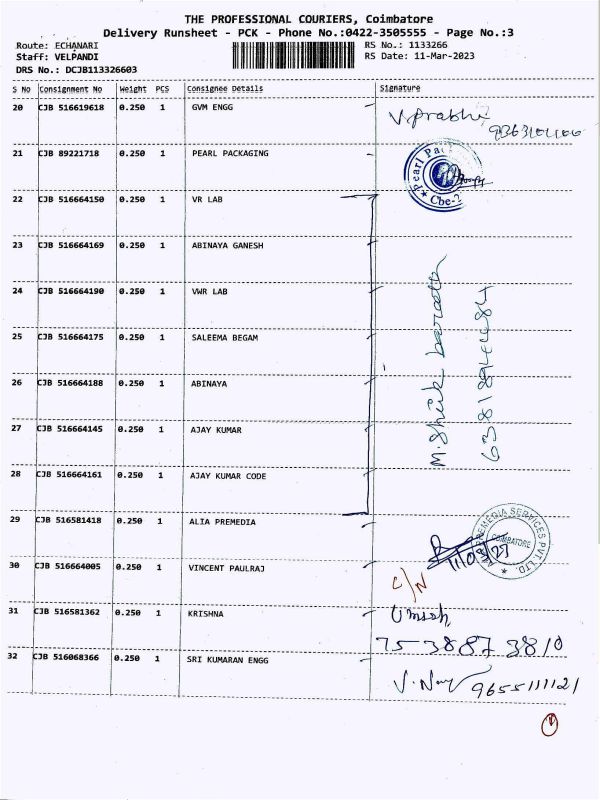 THE PROFESSIONAL COURIERS, Coimbatore
Delivery Runsheet - PCK - Phone No.:0422-3505555 - Page No.:3
Route: ECHANARI RS No.: 1133266
Staff: VELPANDI RS Date: 11-Mar-2023
DRS No.: DCJB113326603
S No Consignment No Weight PCS Consignee Details Signature
20 CJB 516619618 0.250 1 GVM ENGG
V. Prabhu
21 CJB 89221718 0.250 1 PEARL PACKAGING
Pearl Pac
Cbe-2
22 CJB 516664150 0.250 1 VR LAB
23 CJB 516664169 0.250 1 ABINAYA GANESH
24 CJB 516664190 0.250 1 VWR LAB
25 CJB 516664175 0.250 1 SALEEMA BEGAM
26 CJB 516664188 0.250 1 ABINAYA
27 CJB 516664145 0.250 1 AJAY KUMAR
28 CJB 516664161 0.250 1 AJAY KUMAR CODE
M. Shaik
29 CJB 516581418 0.250 1 ALIA PREMEDIA
PREMEDIA SERVICES PVT. LTD.
COIMBATORE
30 CJB 516664005 0.250 1 VINCENT PAULRAJ
C/N
31 CJB 516581362 0.250 1 KRISHNA
Umesh
75 3887 3810
32 CJB 516068366 0.250 1 SRI KUMARAN ENGG
9655111121